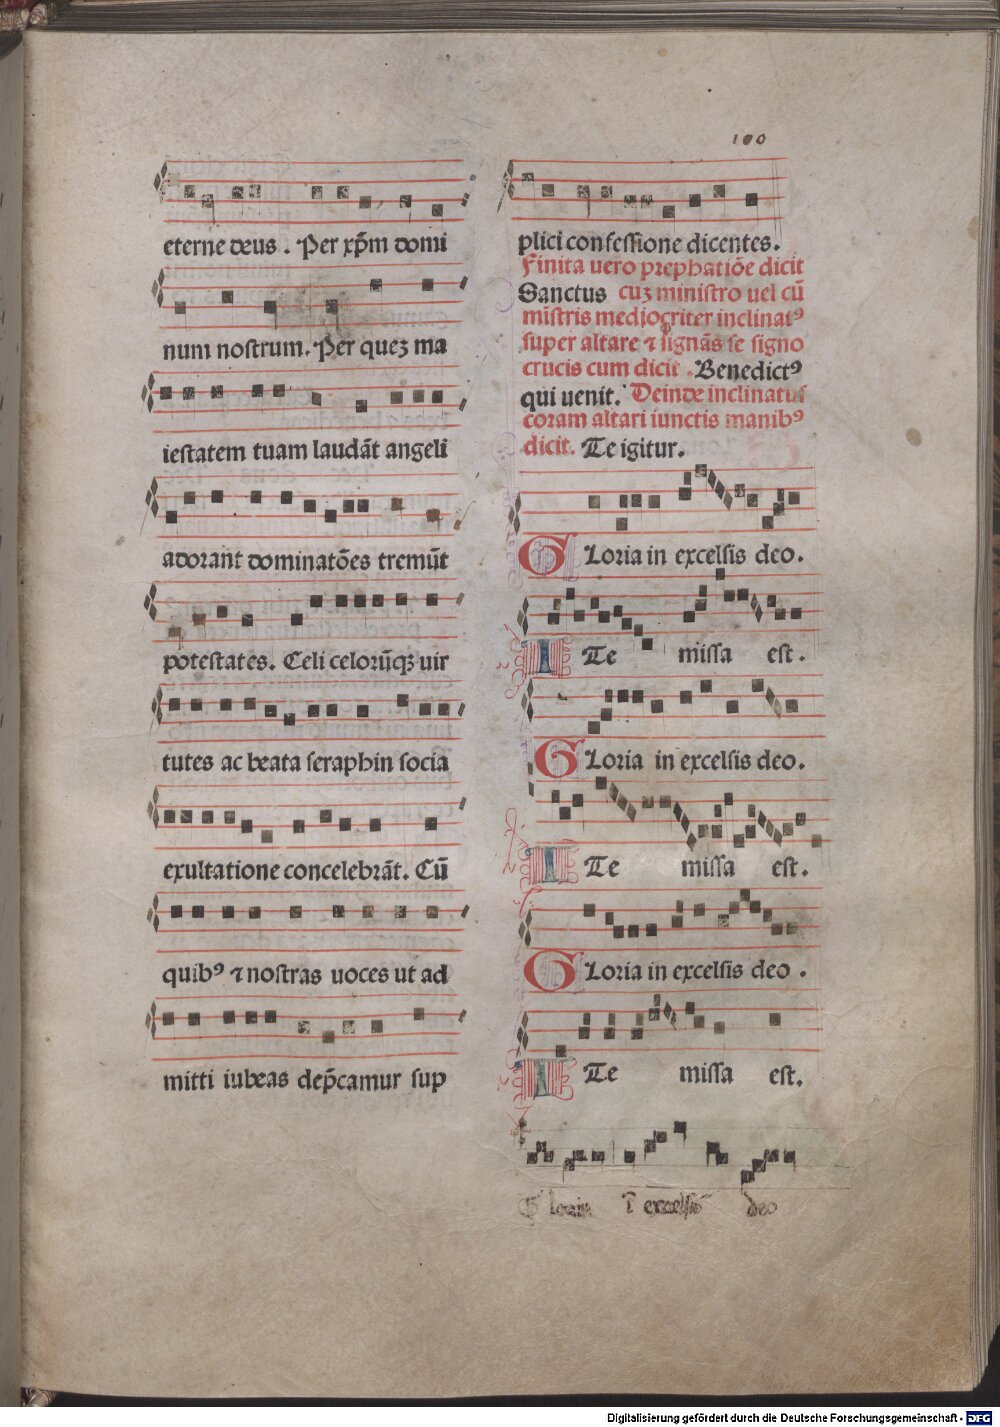 100
eterne deus . Per xp̄m domi
num nostrum. Per queꝫ ma
iestatem tuam laudāt angeli
adorant dominatōes tremūt
potestates. Celi celorūqꝫ uir
tutes ac beata seraphin socia
exultatione concelebrāt. Cū
quibꝰ ⁊ nostras uoces ut ad
mitti iubeas dep̄camur sup
plici confessione dicentes.
Finita uero prephatiōe dicit
Sanctus cuꝫ ministro uel cū
mīstris mediocriter inclinatꝰ
super altare ⁊ signās se signo
crucis cum dicit . Benedictꝰ
qui uenit. Deinde inclinatus
coram altari iunctis manibꝰ
dicit. Te igitur.
Gloria in excelsis deo.
ITe missa est.
Gloria in excelsis deo.
ITe missa est.
Gloria in excelsis deo .
ITe missa est.
Gloria ī excelsis deo
Digitalisierung gefördert durch die Deutsche Forschungsgemeinschaft - DFG